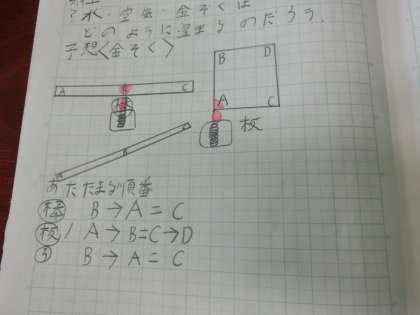 ?水・空気・金ぞくは
どのように温まるのだろう。
予想〈金ぞく〉
A B C
B D
A C
板
B
あたたまる順番
棒 B→A=C
板 A→B=C→D
B→A=C